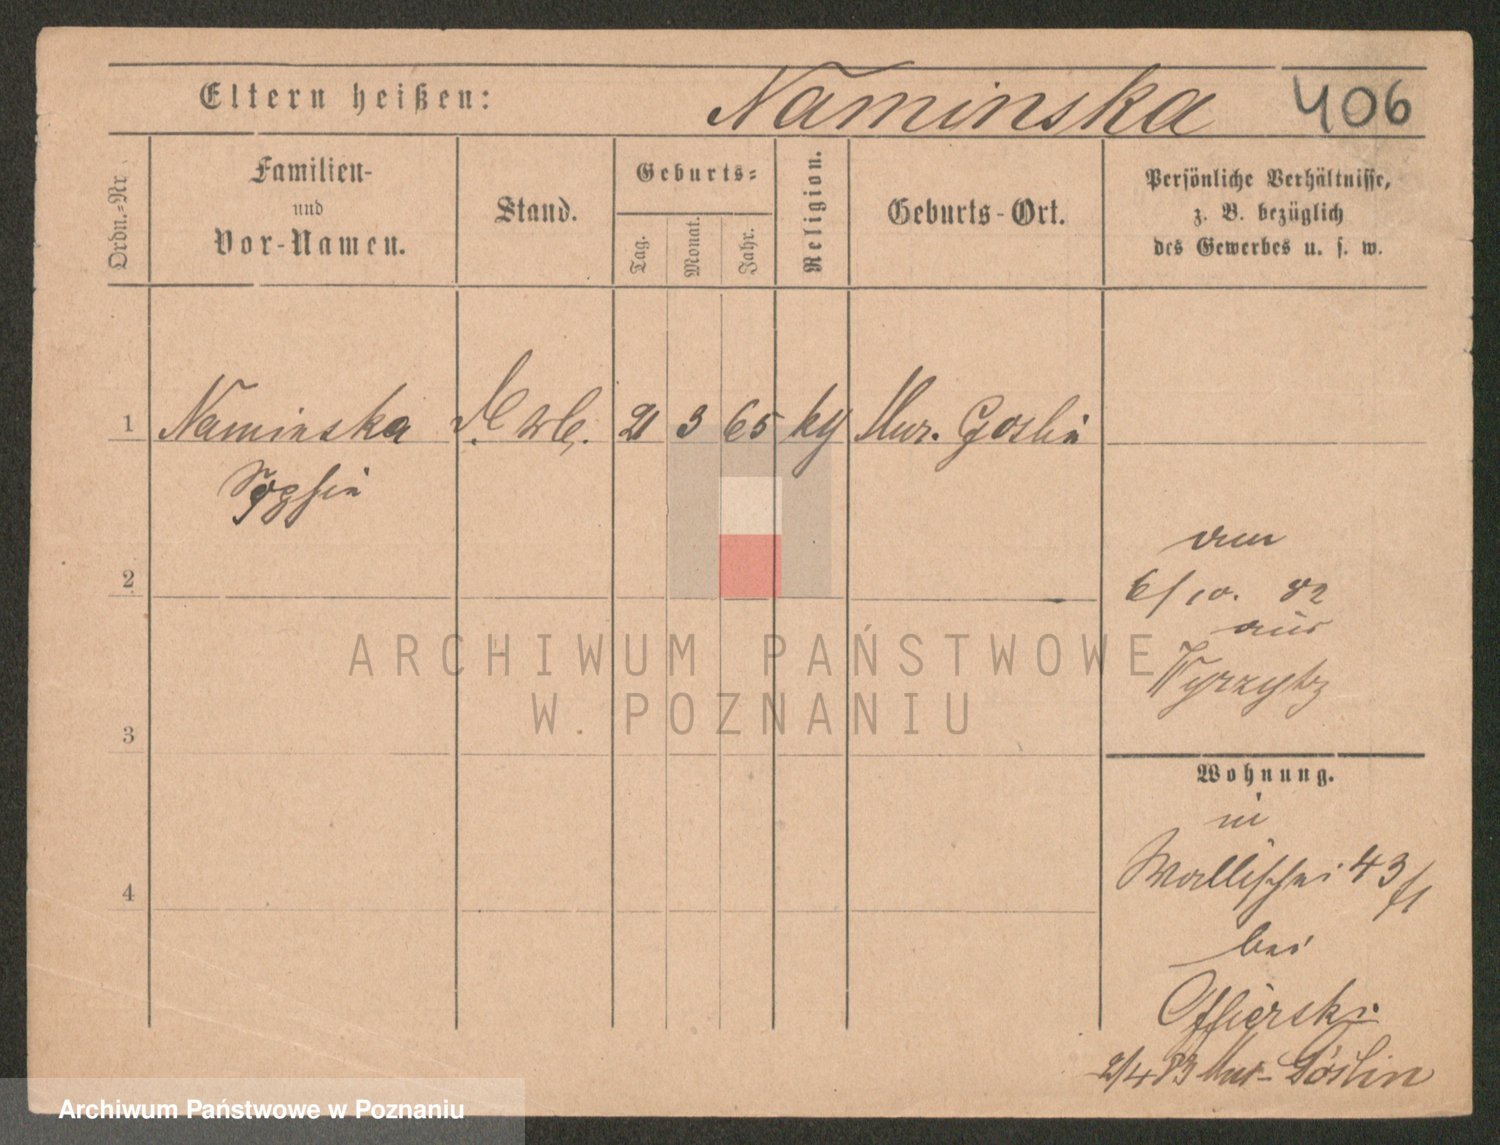 Eltern heißen: Naminska 406
Ordn.-Nr.
Familien-
und
Vor-Namen.
Stand.
Geburts-
Tag.
Monat.
Jahr.
Religion.
Geburts-Ort.
Persönliche Verhältnisse,
z. B. bezüglich
des Gewerbes u. s. w.
1 Naminska 21 3 65 Mur. Goslin
Sophie
am
2
6/10. 82
aus
3
Wohnung.
in
4 Wallischei 43/I
bei
Offierski
2/4 83 Mur-Goslin
ARCHIWUM PAŃSTWOWE
W POZNANIU
Archiwum Państwowe w Poznaniu